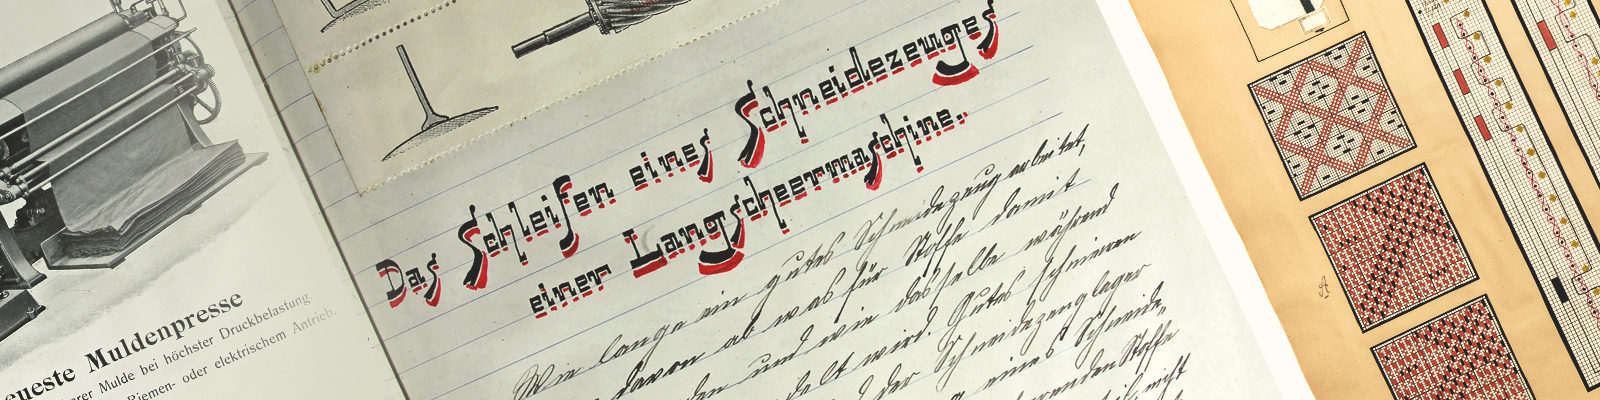 Neueste Muldenpresse
Mulde bei höchster Druckbelastung.
Riemen- oder elektrischem Antrieb.
Das Schleifen eines Schneidezeuges
einer Langscheermaschine.
Wie lange ein gutes Schneidezeug arbeitet,
davon ab was für Stoffe damit
und wie dasselbe während
wird. Gutes schmieren
der Schneidzeuglager
eines Schneide-
den Stoffe
nicht